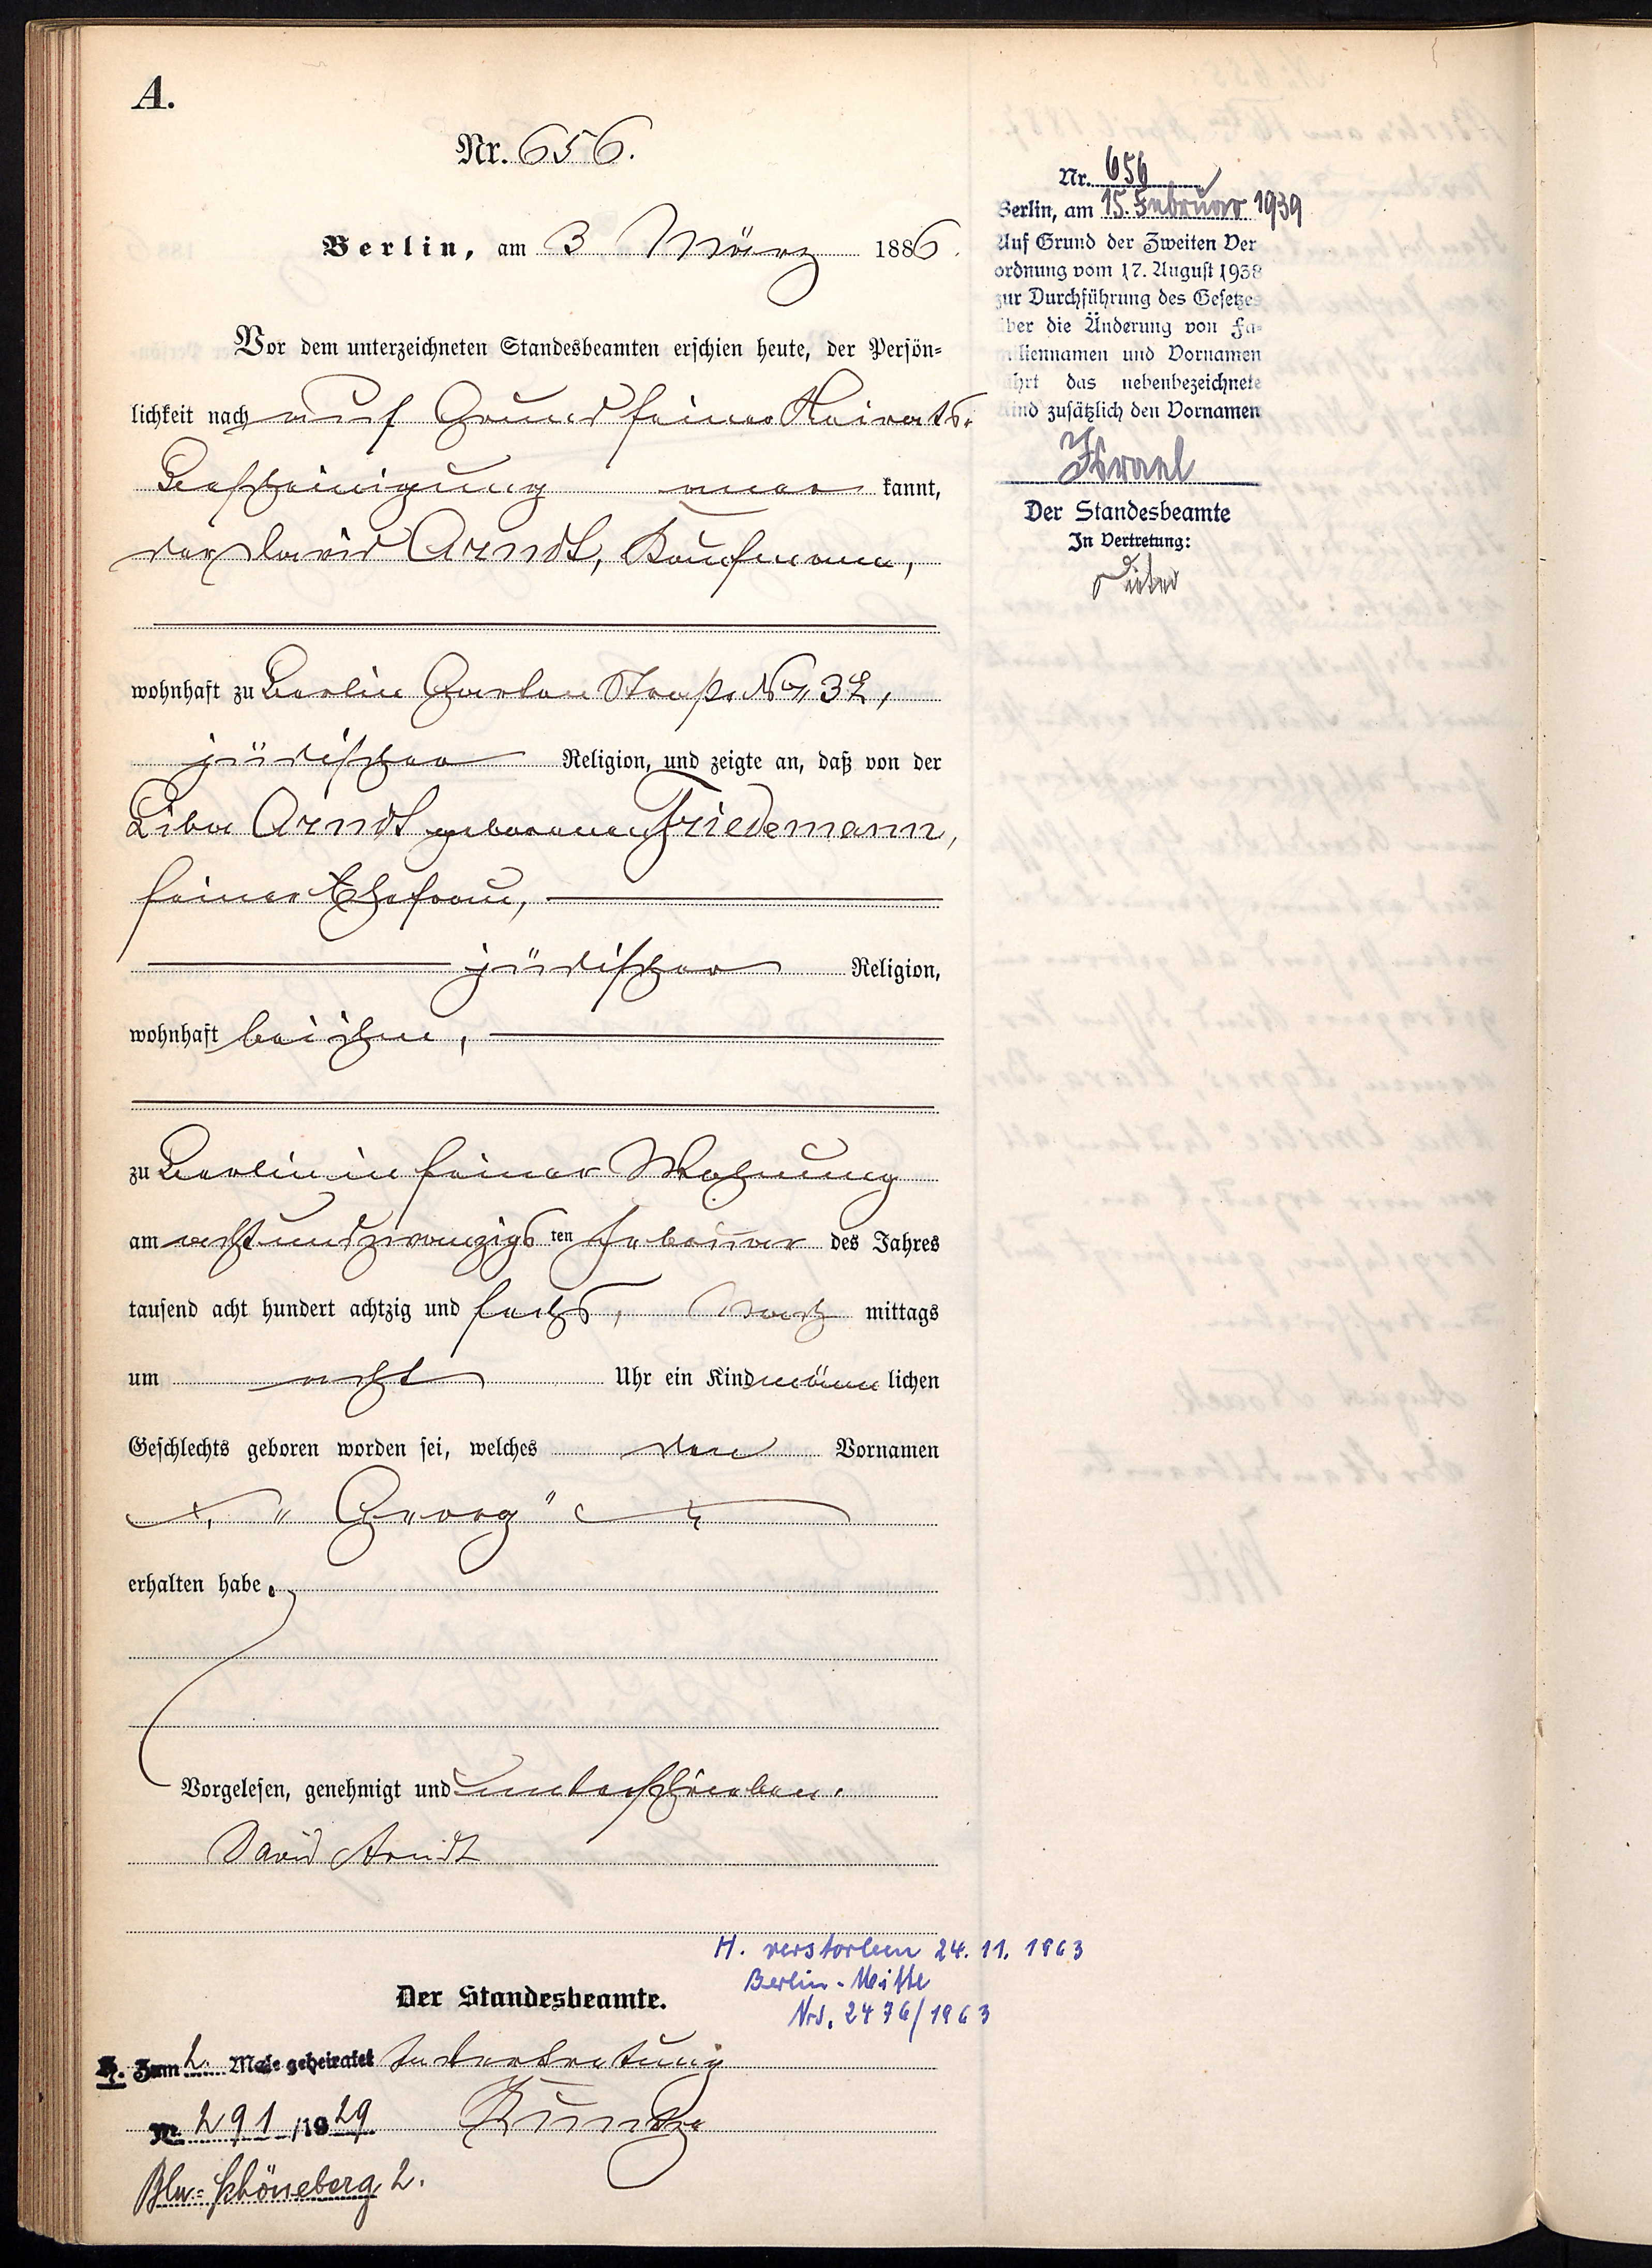 A.
Nr. 656.
Berlin, am 3 März 1886.
Vor dem unterzeichneten Standesbeamten erschien heute, der Persön=
lichkeit nach auf Grund seiner Heirats-
Bescheinigung aner kannt,
der David Arndt, Kaufmann,
wohnhaft zu Berlin Garten Straße No 32,
jüdischer Religion, und zeigte an, daß von der
Liba Arndt geborenen Friedemann,
seiner Ehefrau,
jüdischer Religion,
wohnhaft bei ihm,
zu Berlin in seiner Wohnung
am achtundzwanzigs ten Februar des Jahres
tausend acht hundert achtzig und sechs, Nach mittags
um acht Uhr ein Kind männ lichen
Geschlechts geboren worden sei, welches den Vornamen
"Georg"
erhalten habe.
Vorgelesen, genehmigt und unterschrieben.
David Arndt
Der Standesbeamte.
In Vertretung
Kuntze
Nr. 656
Berlin, am 15. Februar 1939
Auf Grund der Zweiten Ver
ordnung vom 17. August 1938
zur Durchführung des Gesetzes
über die Änderung von Fa=
miliennamen und Vornamen
führt das nebenbezeichnete
Kind zusätzlich den Vornamen
Israel
Der Standesbeamte
In Vertretung:
H. verstorben 24. 11. 1963
Berlin-Mitte
Nr. 2476/1963
H. Zum 2. Male geheiratet
Nr. 291/1929
Bln=Schöneberg 2.